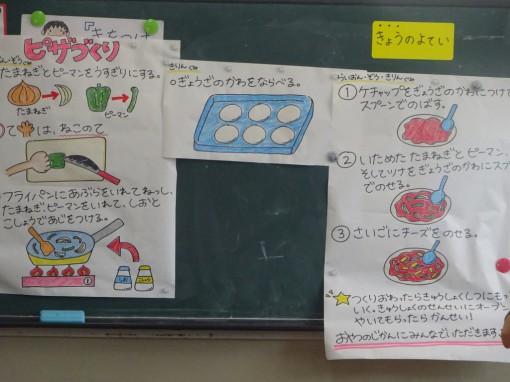 『きもつけ
ピザづくり
たまねぎとピーマンをうすぎりにする。
たまねぎ
ピーマン
ては、ねこのて
フライパンにあぶらをいれてねっし、
たまねぎ、ピーマンをいれて、しおと
こしょうであじをつける。
しお
きりんぐみ
ぎょうざのかわをならべる。
きょうのよてい
らいおん・ぞう・きりんぐみ
① ケチャップをぎょうざのかわにつけて
スプーンでのばす。
② いためた たまねぎと ピーマン、
そしてツナをぎょうざのかわにス
でのせる。
③ さいごにチーズをのせる。
つくりおわったらきゅうしょくしつにもっ
いく。きゅうしょくのせんせいにオーブン
やいてもらったら かんせい!
おやつのじかんにみんなでいただきます